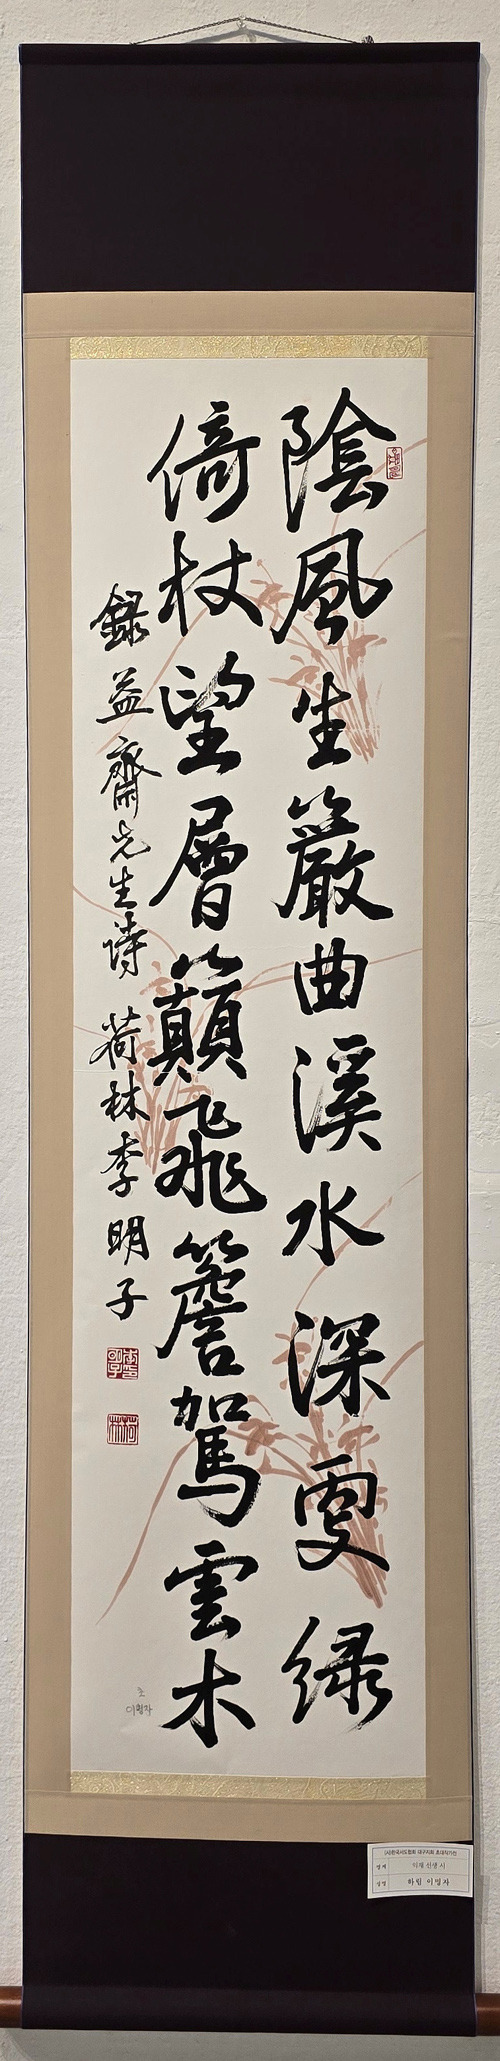 陰風生巖曲溪水深更綠
倚杖望層巔飛簷駕雲木
錄益齋先生詩 荷林李明子
이명자
(사)한국서도협회 대구지회 초대작가전
명제 익재선생시
성명 하림 이명자